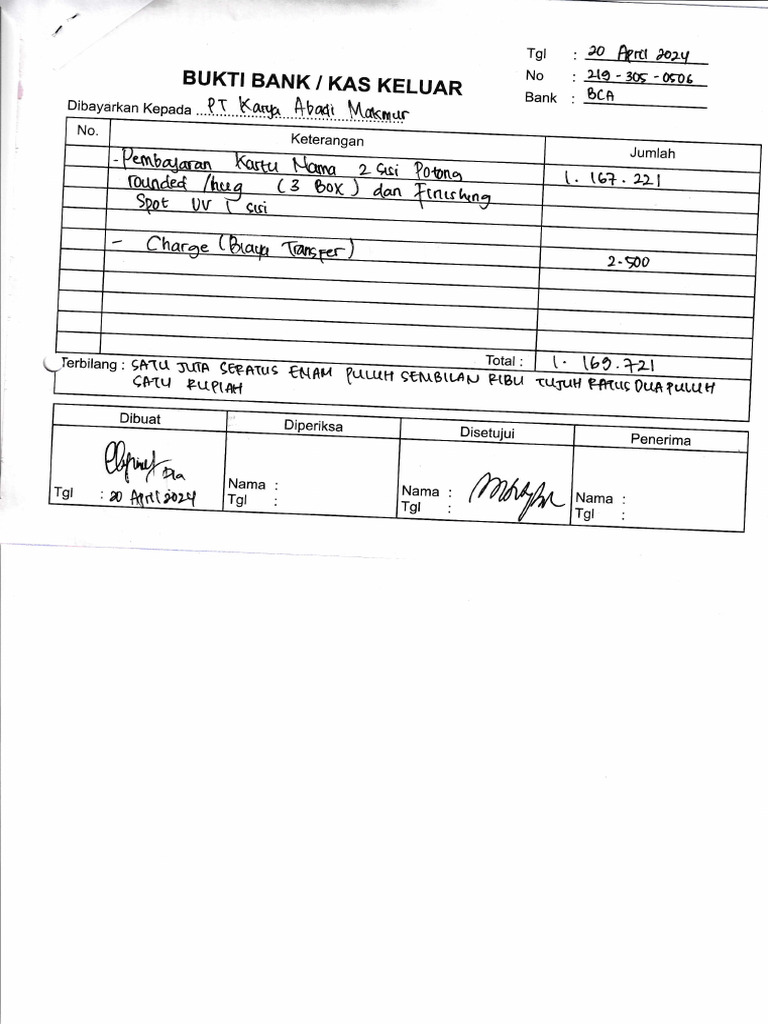 Tgl : 20 April 2024
BUKTI BANK / KAS KELUAR
No : 219-305-0506
Bank : BCA
Dibayarkan Kepada PT Karya Abadi Makmur
No. Keterangan Jumlah
- Pembayaran Kartu Nama 2 sisi Potong 1.167.221
rounded / (3 Box) dan Finishing
Spot UV 1 sisi
- Charge (Biaya Transfer) 2.500
Total : 1.169.721
Terbilang : SATU JUTA SERATUS ENAM PULUH SEMBILAN RIBU TUJUH RATUS DUA PULUH
SATU RUPIAH
Dibuat Diperiksa Disetujui Penerima
Dia
Nama : Nama : Nama :
Tgl : 20 April 2024 Tgl : Tgl : Tgl :